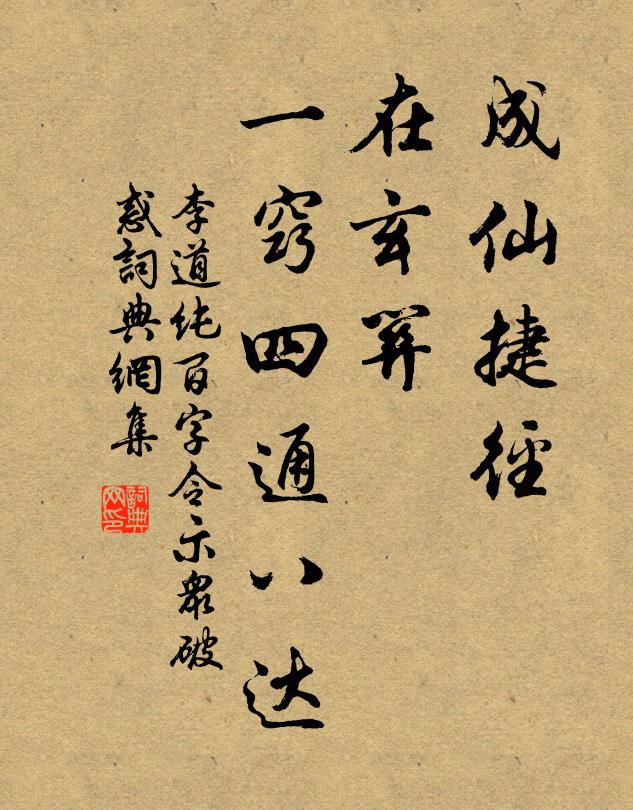 成仙捷徑
在玄筭
一窍四通八达
李道纯百字令示眾破
惑詞典網集
詞典网印